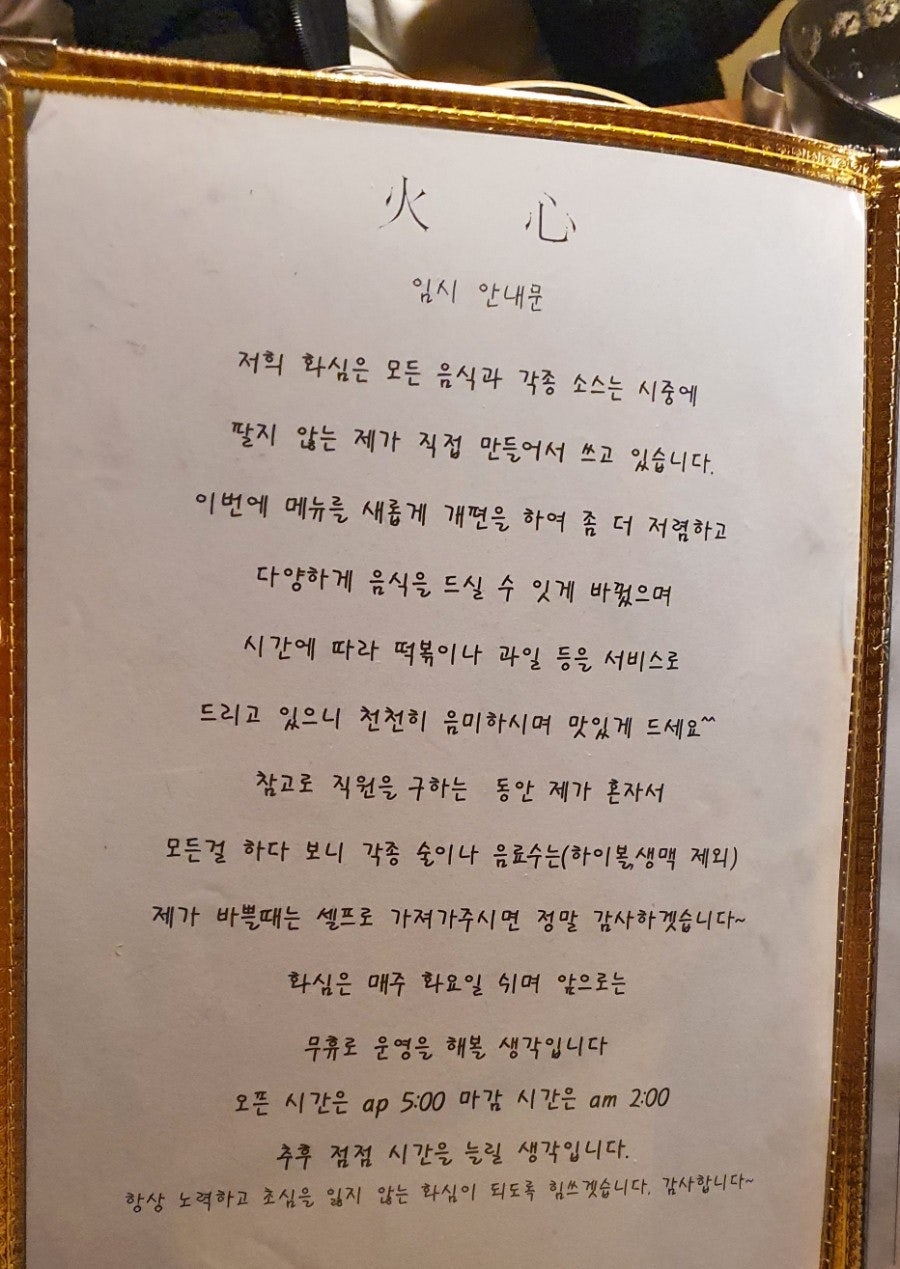 火 心
임시 안내문
저희 화심은 모든 음식과 각종 소스는 시중에
팔지 않는 제가 직접 만들어서 쓰고 있습니다.
이번에 메뉴를 새롭게 개편을 하여 좀 더 저렴하고
다양하게 음식을 드실 수 잇게 바꿨으며
시간에 따라 떡볶이나 과일 등을 서비스로
드리고 있으니 천천히 음미하시며 맛있게 드세요^^
참고로 직원을 구하는 동안 제가 혼자서
모든걸 하다 보니 각종 술이나 음료수는(하이볼,생맥 제외)
제가 바쁠때는 셀프로 가져가주시면 정말 감사하겟습니다~
화심은 매주 화요일 쉬며 앞으로는
무휴로 운영을 해볼 생각입니다
오픈 시간은 ap 5:00 마감 시간은 am 2:00
추후 점점 시간을 늘릴 생각입니다.
항상 노력하고 초심을 잃지 않는 화심이 되도록 힘쓰겟습니다. 감사합니다~